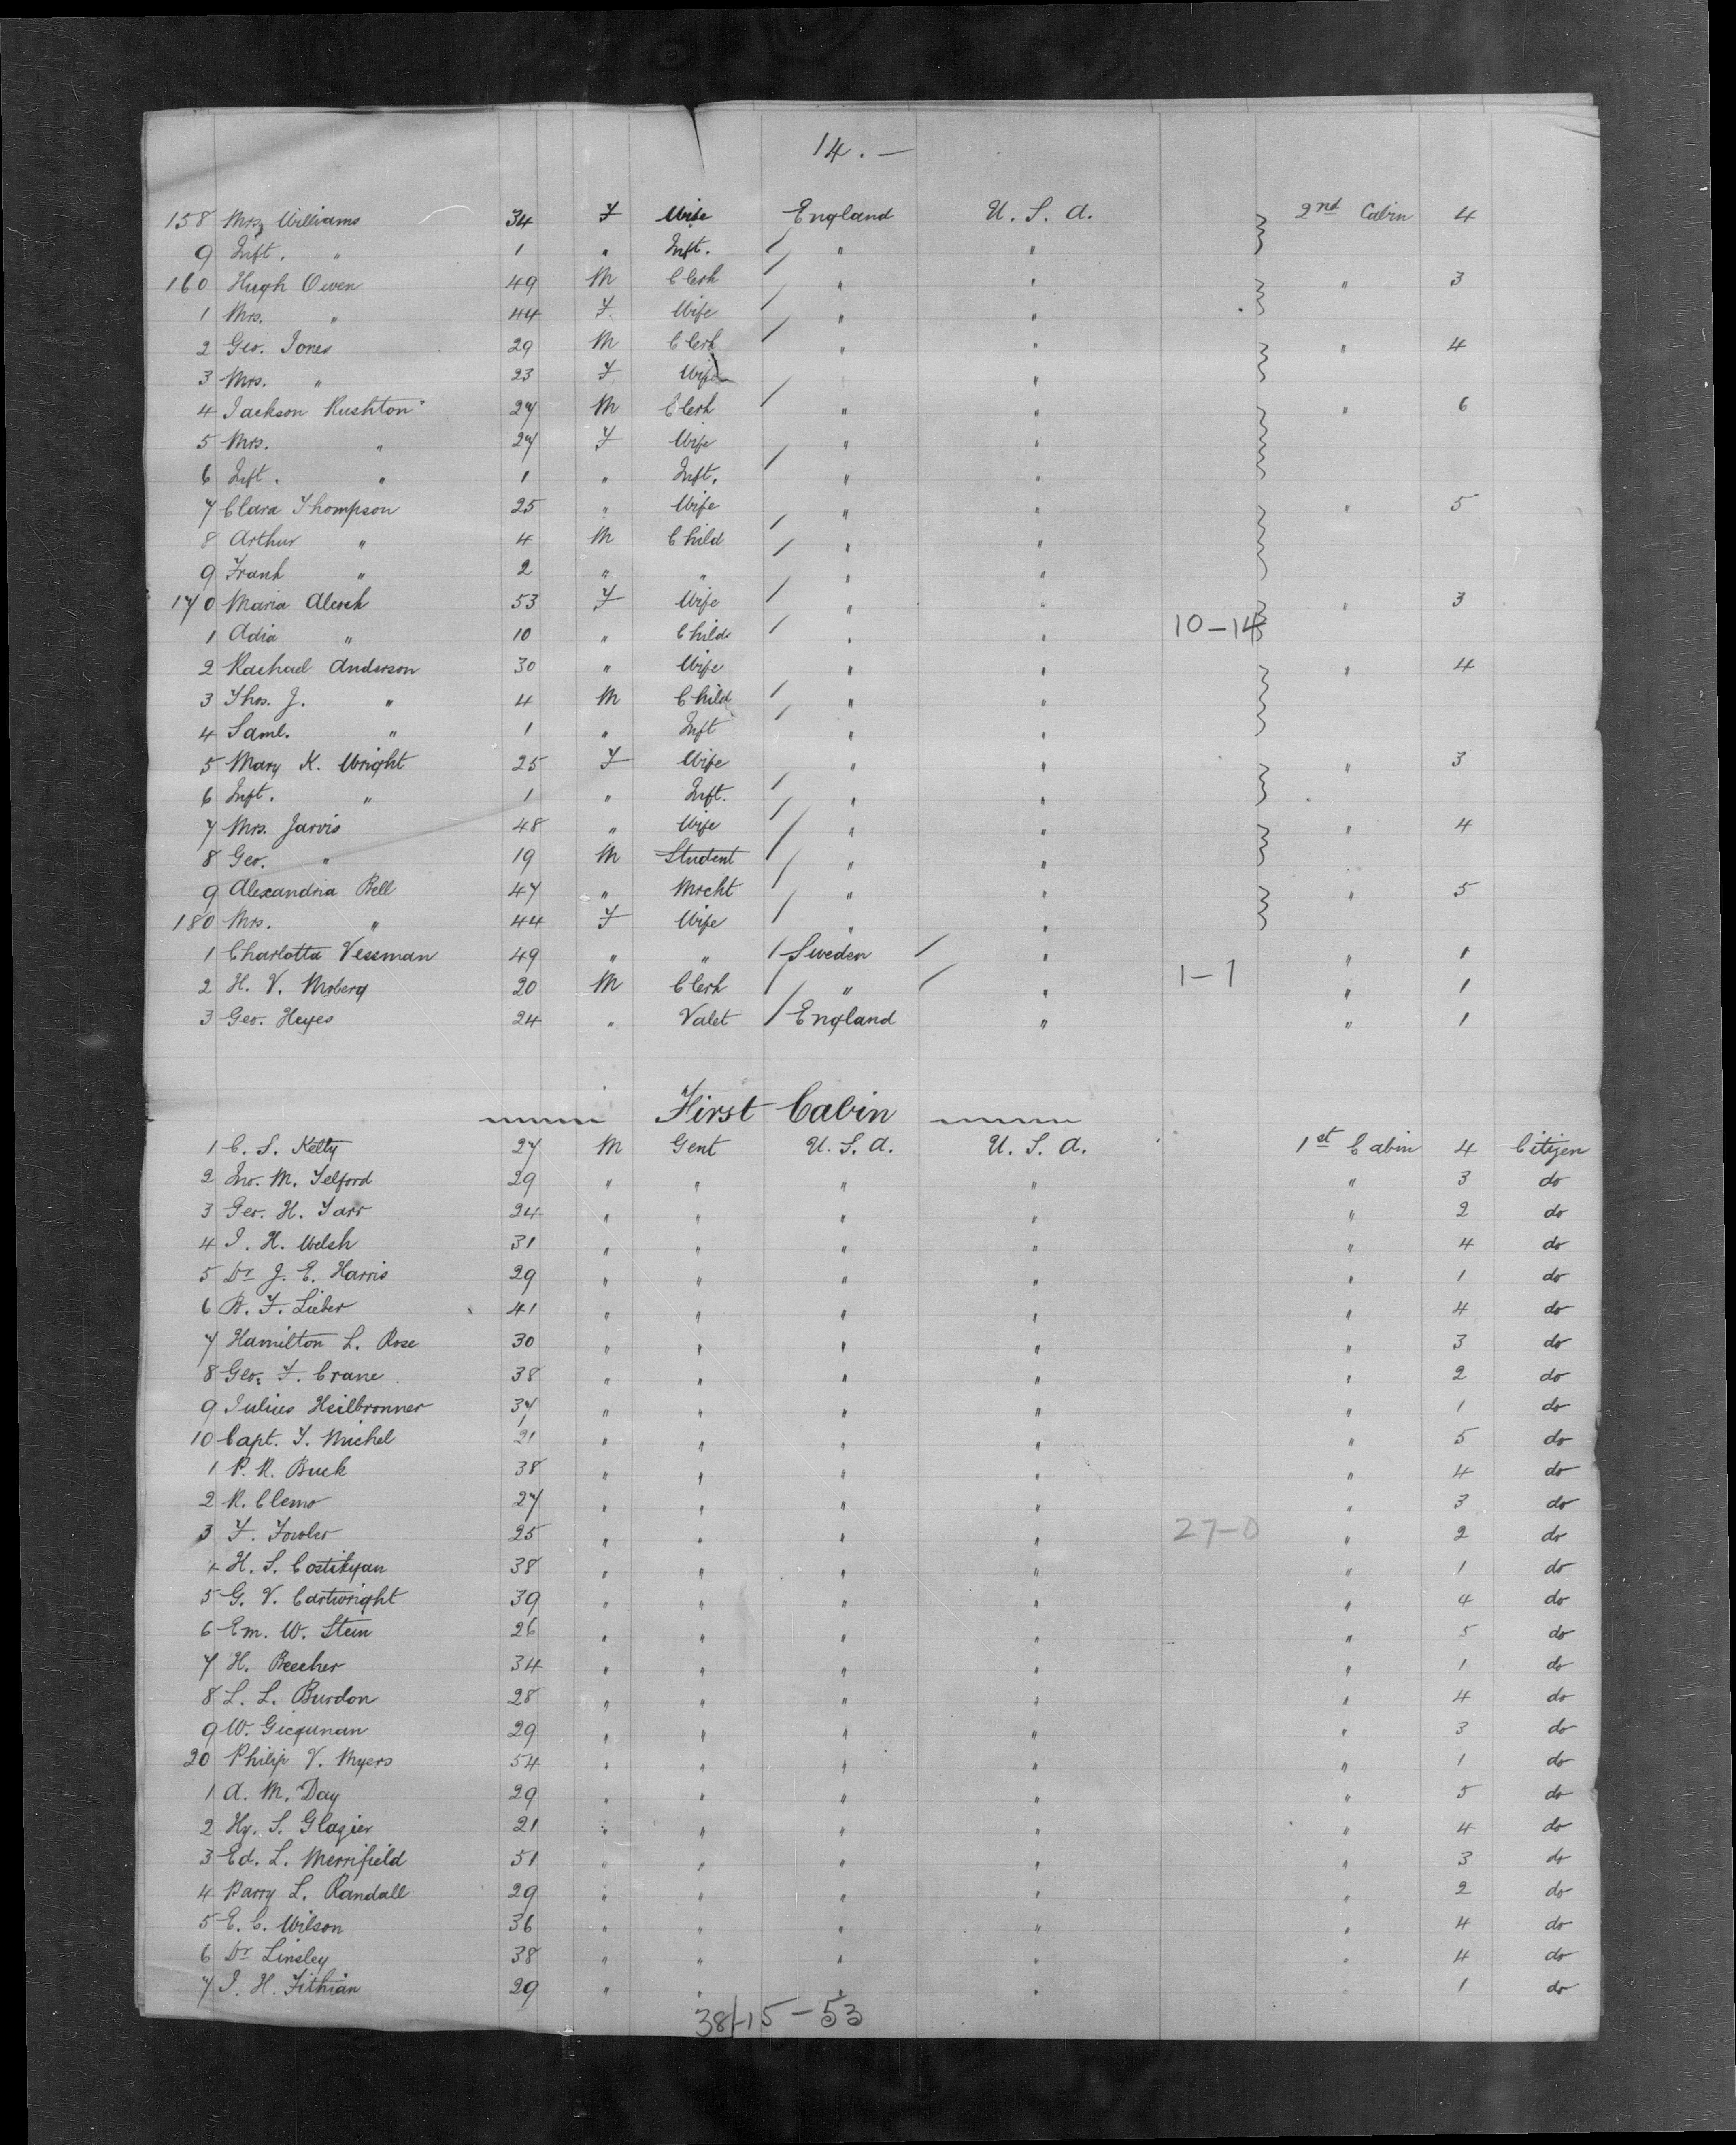 14. —
158 Mrs Williams 34 F Wife England U. S. A. 2nd Cabin 4
9 Inft. " 1 " Inft. " "
160 Hugh Owen 49 M Clerk " " " 3
1 Mrs. " 44 F. Wife " "
2 Geo. Jones 29 M Clerk " " " 4
3 Mrs. " 23 F. Wife "
4 Jackson Rushton 27 M Clerk " " " 6
5 Mrs. " 27 F Wife " "
6 Inft. " 1 " Inft. " "
7 Clara Thompson 25 " Wife " " " 5
8 Arthur " 4 M Child " "
9 Frank " 2 " " " "
170 Maria Alcock 53 F Wife " " " 3
1 Adia " 10 " Child " " 10-14
2 Rachael Anderson 30 " Wife " " " 4
3 Thos. J. " 4 M Child " "
4 Saml. " 1 " Inft " "
5 Mary K. Wright 25 F Wife " " " 3
6 Inft. " 1 " Inft. " "
7 Mrs. Jarvis 48 " Wife " " " 4
8 Geo. " 19 M Student " "
9 Alexandria Bell 47 " Mrcht " " " 5
180 Mrs. " 44 F Wife " "
1 Charlotta Vessman 49 " " Sweden " " 1
2 H. V. 20 M Clerk " " 1-1 " 1
3 Geo. Heyes 24 " Valet England " " 1
First Cabin
1 C. S. Kelly 27 M Gent U. S. A. U. S. A. 1st Cabin 4 Citizen
2 Jno. M. Telford 29 " " " " " 3 do
3 Geo. H. Tarr 24 " " " " " 2 do
4 J. H. Welsh 31 " " " " " 4 do
5 Dr J. E. Harris 29 " " " " " 1 do
6 B. F. Lieber 41 " " " " " 4 do
7 Hamilton L. Rose 30 " " " " " 3 do
8 Geo. F. Crane 38 " " " " " 2 do
9 Julius Heilbronner 37 " " " " " 1 do
10 Capt. T. Michel 21 " " " " " 5 do
1 P. R. Buck 38 " " " " " 4 do
2 R. Clemo 27 " " " " " 3 do
3 F. Fowler 25 " " " " 27-0 " 2 do
4 H. S. Costikyan 38 " " " " " 1 do
5 G. V. Cartwright 39 " " " " " 4 do
6 Em. W. Stein 26 " " " " " 5 do
7 H. Beecher 34 " " " " " 1 do
8 L. L. Burdon 28 " " " " " 4 do
9 W. 29 " " " " " 3 do
20 Philip V. Myers 54 " " " " " 1 do
1 A. M. Day 29 " " " " " 5 do
2 Hy. S. Glazier 21 " " " " " 4 do
3 Ed. L. Merrifield 51 " " " " " 3 do
4 Barry L. Randall 29 " " " " " 2 do
5 E. C. Wilson 36 " " " " " 4 do
6 Dr Linsley 38 " " " " " 4 do
7 J. H. Fithian 29 " " " " " 1 do
38-15-53